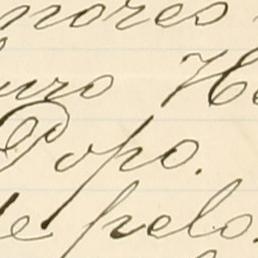 mores
uro He
Popo.
te pelo